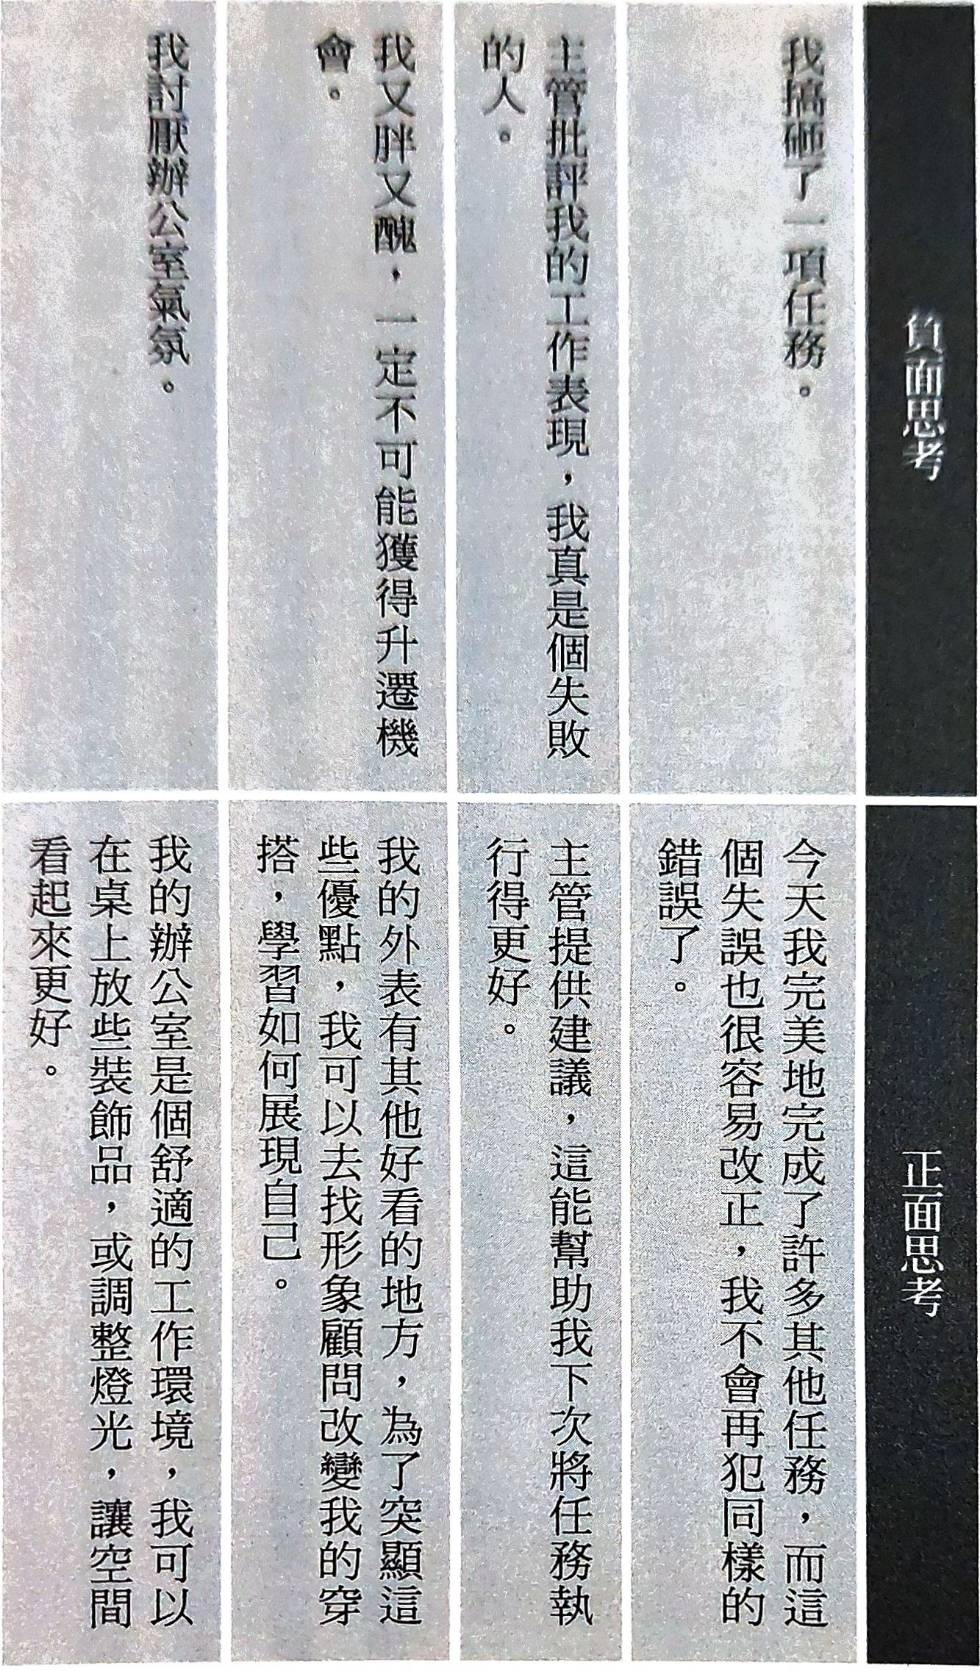 負面思考
正面思考
我搞砸了一項任務。
今天我完美地完成了許多其他任務，而這
個失誤也很容易改正，我不會再犯同樣的
錯誤了。
主管批評我的工作表現，我真是個失敗
的人。
主管提供建議，這能幫助我下次將任務執
行得更好。
我又胖又醜，一定不可能獲得升遷機
會。
我的外表有其他好看的地方，為了突顯這
些優點，我可以去找形象顧問改變我的穿
搭，學習如何展現自己。
我討厭辦公室氣氛。
我的辦公室是個舒適的工作環境，我可以
在桌上放些裝飾品，或調整燈光，讓空間
看起來更好。